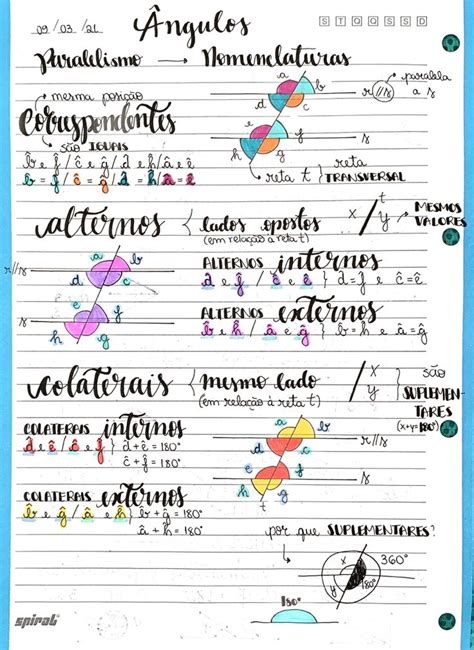 09/03/21 Ângulos S T Q Q S S D
Paralelismo → Nomenclaturas
mesma posição
Correspondentes
são IGUAIS
b̂ e f̂ / ĉ e ĝ / d̂ e ĥ / â e ê
b̂ = f̂ / ĉ = ĝ / d̂ = ĥ / â = ê
a b c d r//s paralela a s
e f g h s
reta t } reta TRANSVERSAL
alternos { lados opostos
(em relação à reta t)
x / y t MESMOS VALORES
a b d c r//s
e f h g s
ALTERNOS internos
d̂ e f̂ / ĉ e ê } d̂ = f̂ e ĉ = ê
ALTERNOS externos
b̂ e ĥ / â e ĝ } b̂ = h e â = ĝ
colaterais { mesmo lado
(em relação à reta t)
x / y são SUPLEMENTARES
(x+y=180°)
COLATERAIS internos
d̂ e ê / ĉ e f̂ } d̂ + ê = 180°
ĉ + f̂ = 180°
a b d c r//s
e f h g s
t
COLATERAIS externos
b̂ e ĝ / â e ĥ } b̂ + ĝ = 180°
â + ĥ = 180°
por que SUPLEMENTARES?
x y 360°
180°
180°
spiral